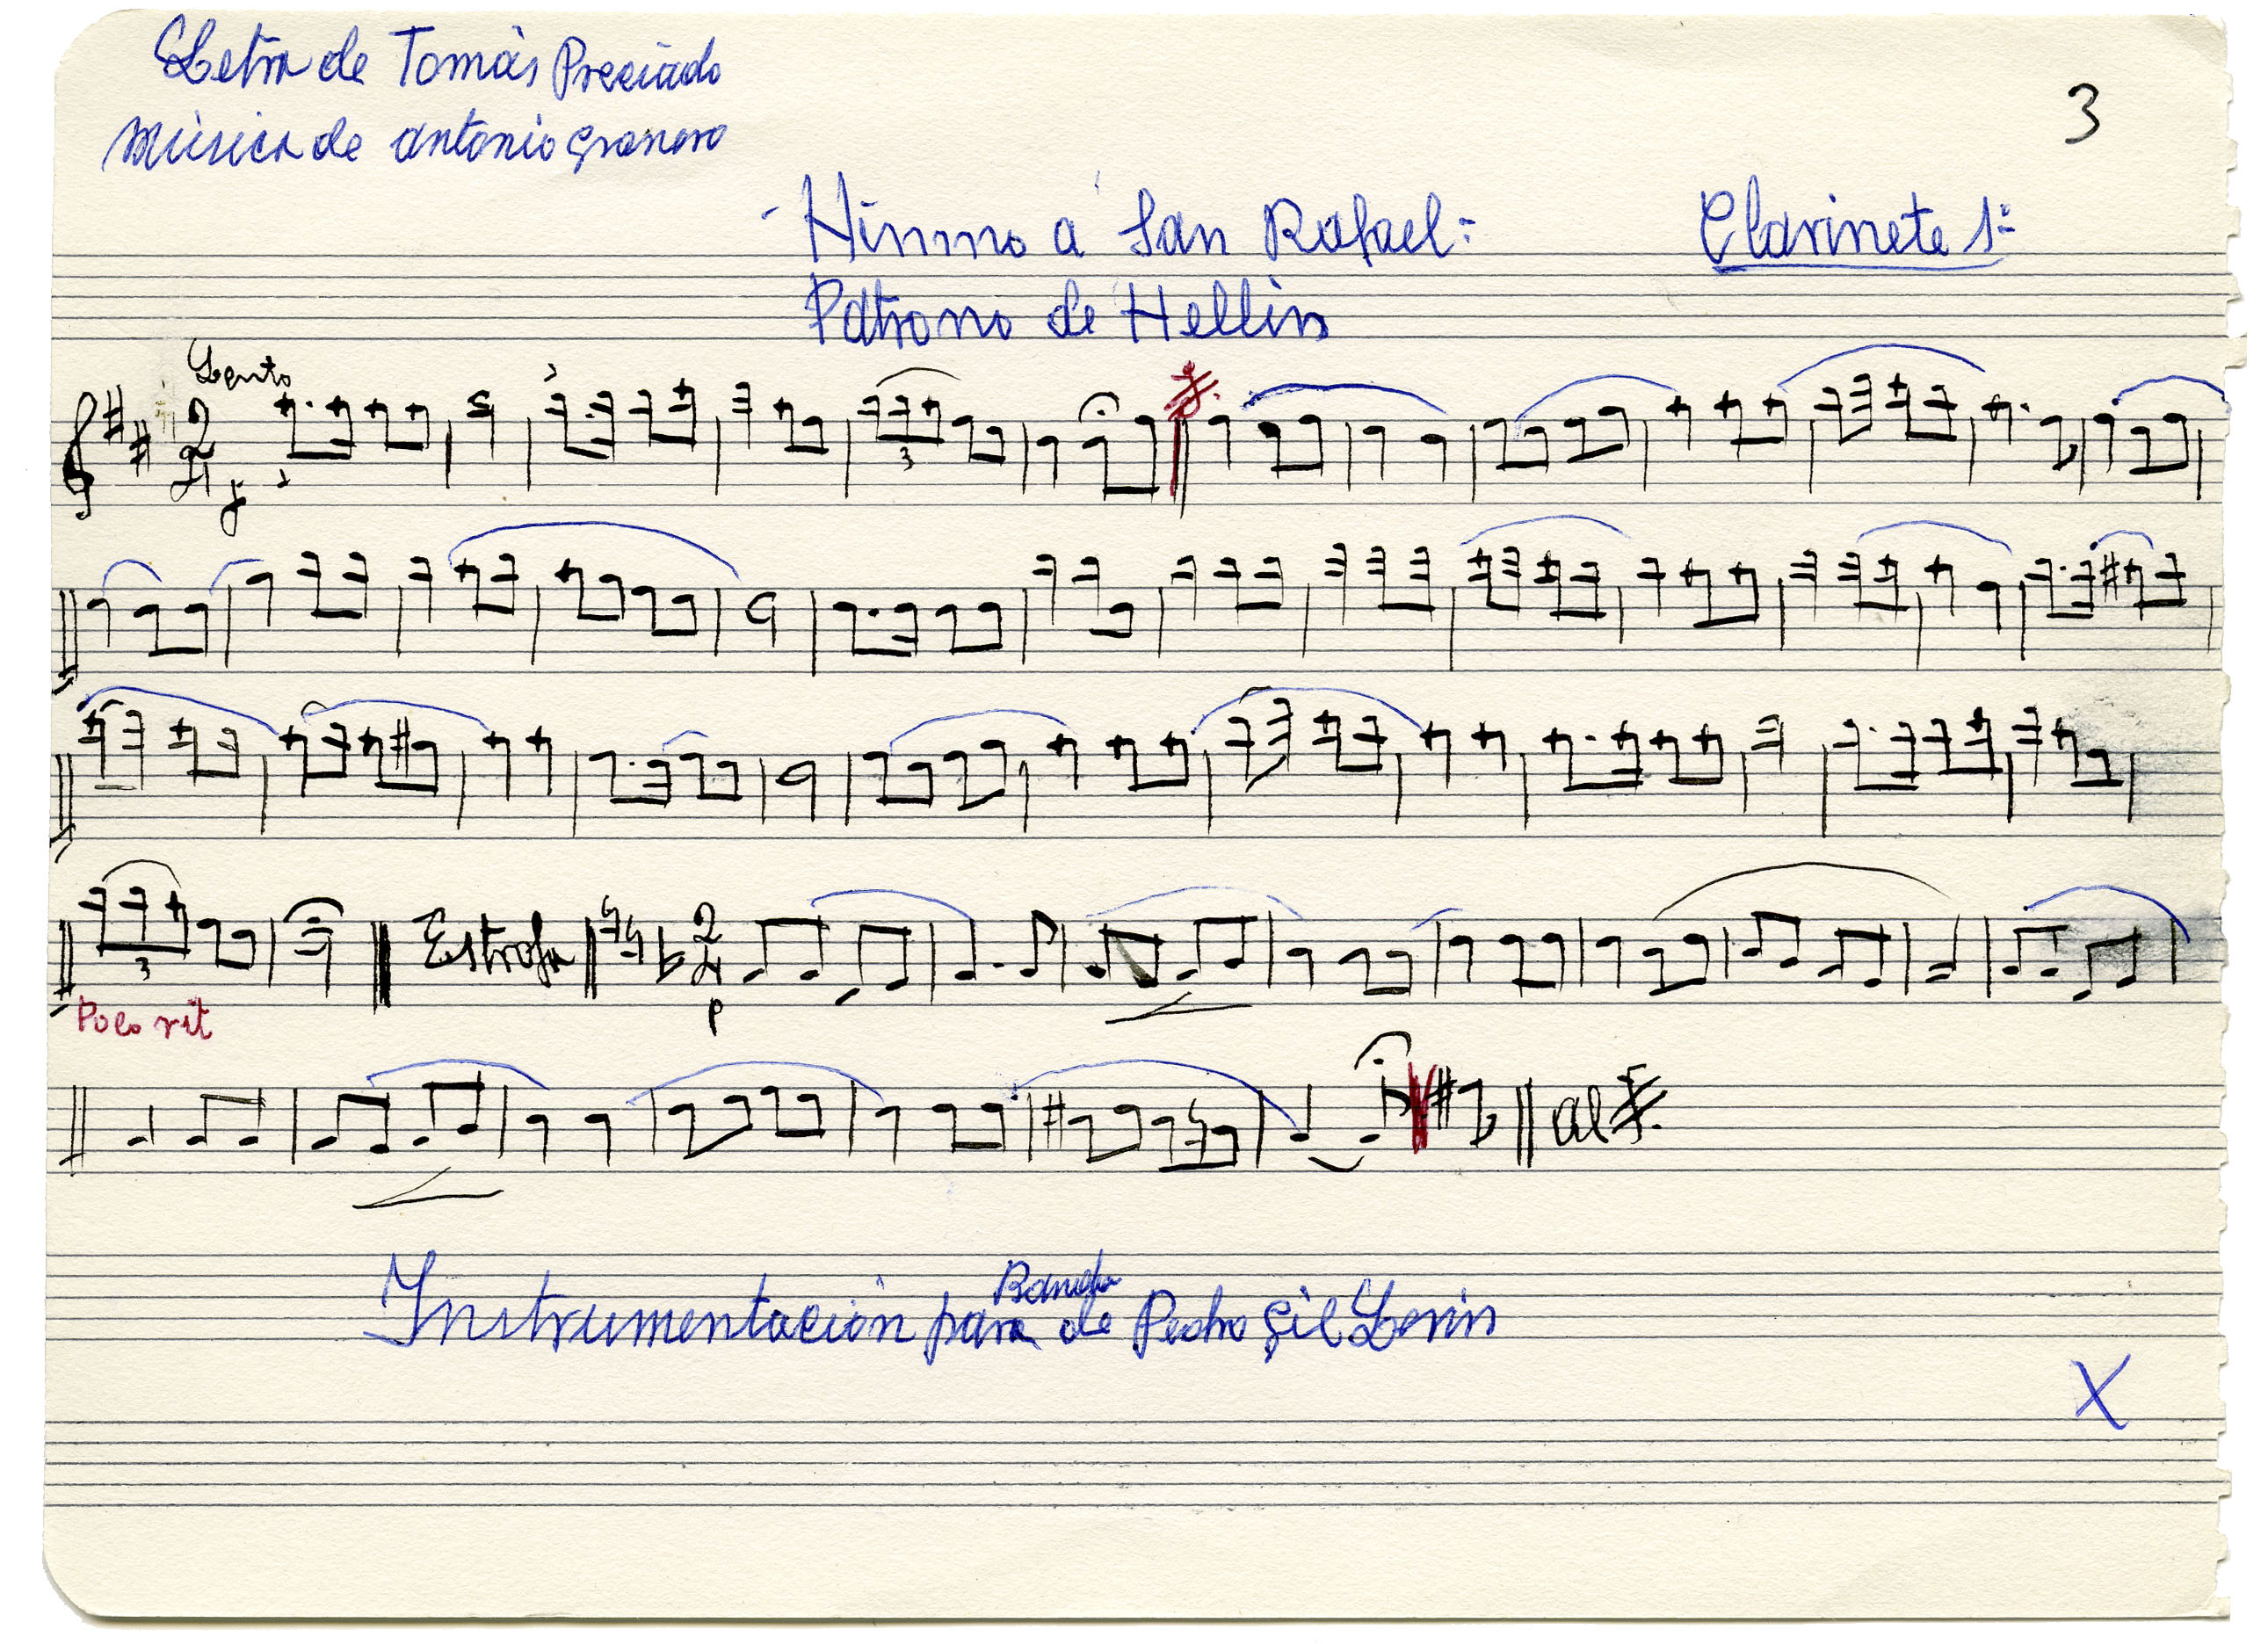 Letra de Tomás Preciado
Música de Antonio Granero
3
- Himno a San Rafael -
Clarinete 1º
Patrono de Hellín
Lento
2
4
f
3
3
Poco rit
Estrofa
2
4
p
al
Instrumentación para Banda de Pedro Gil Lerín
X